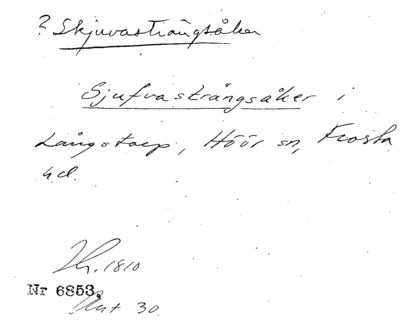 ? Skjuvasträngsåker
Sjufvasträngsåker i
Långstorp, Höör sn, Frosta
hd.
1810
Nr 6853.
30.